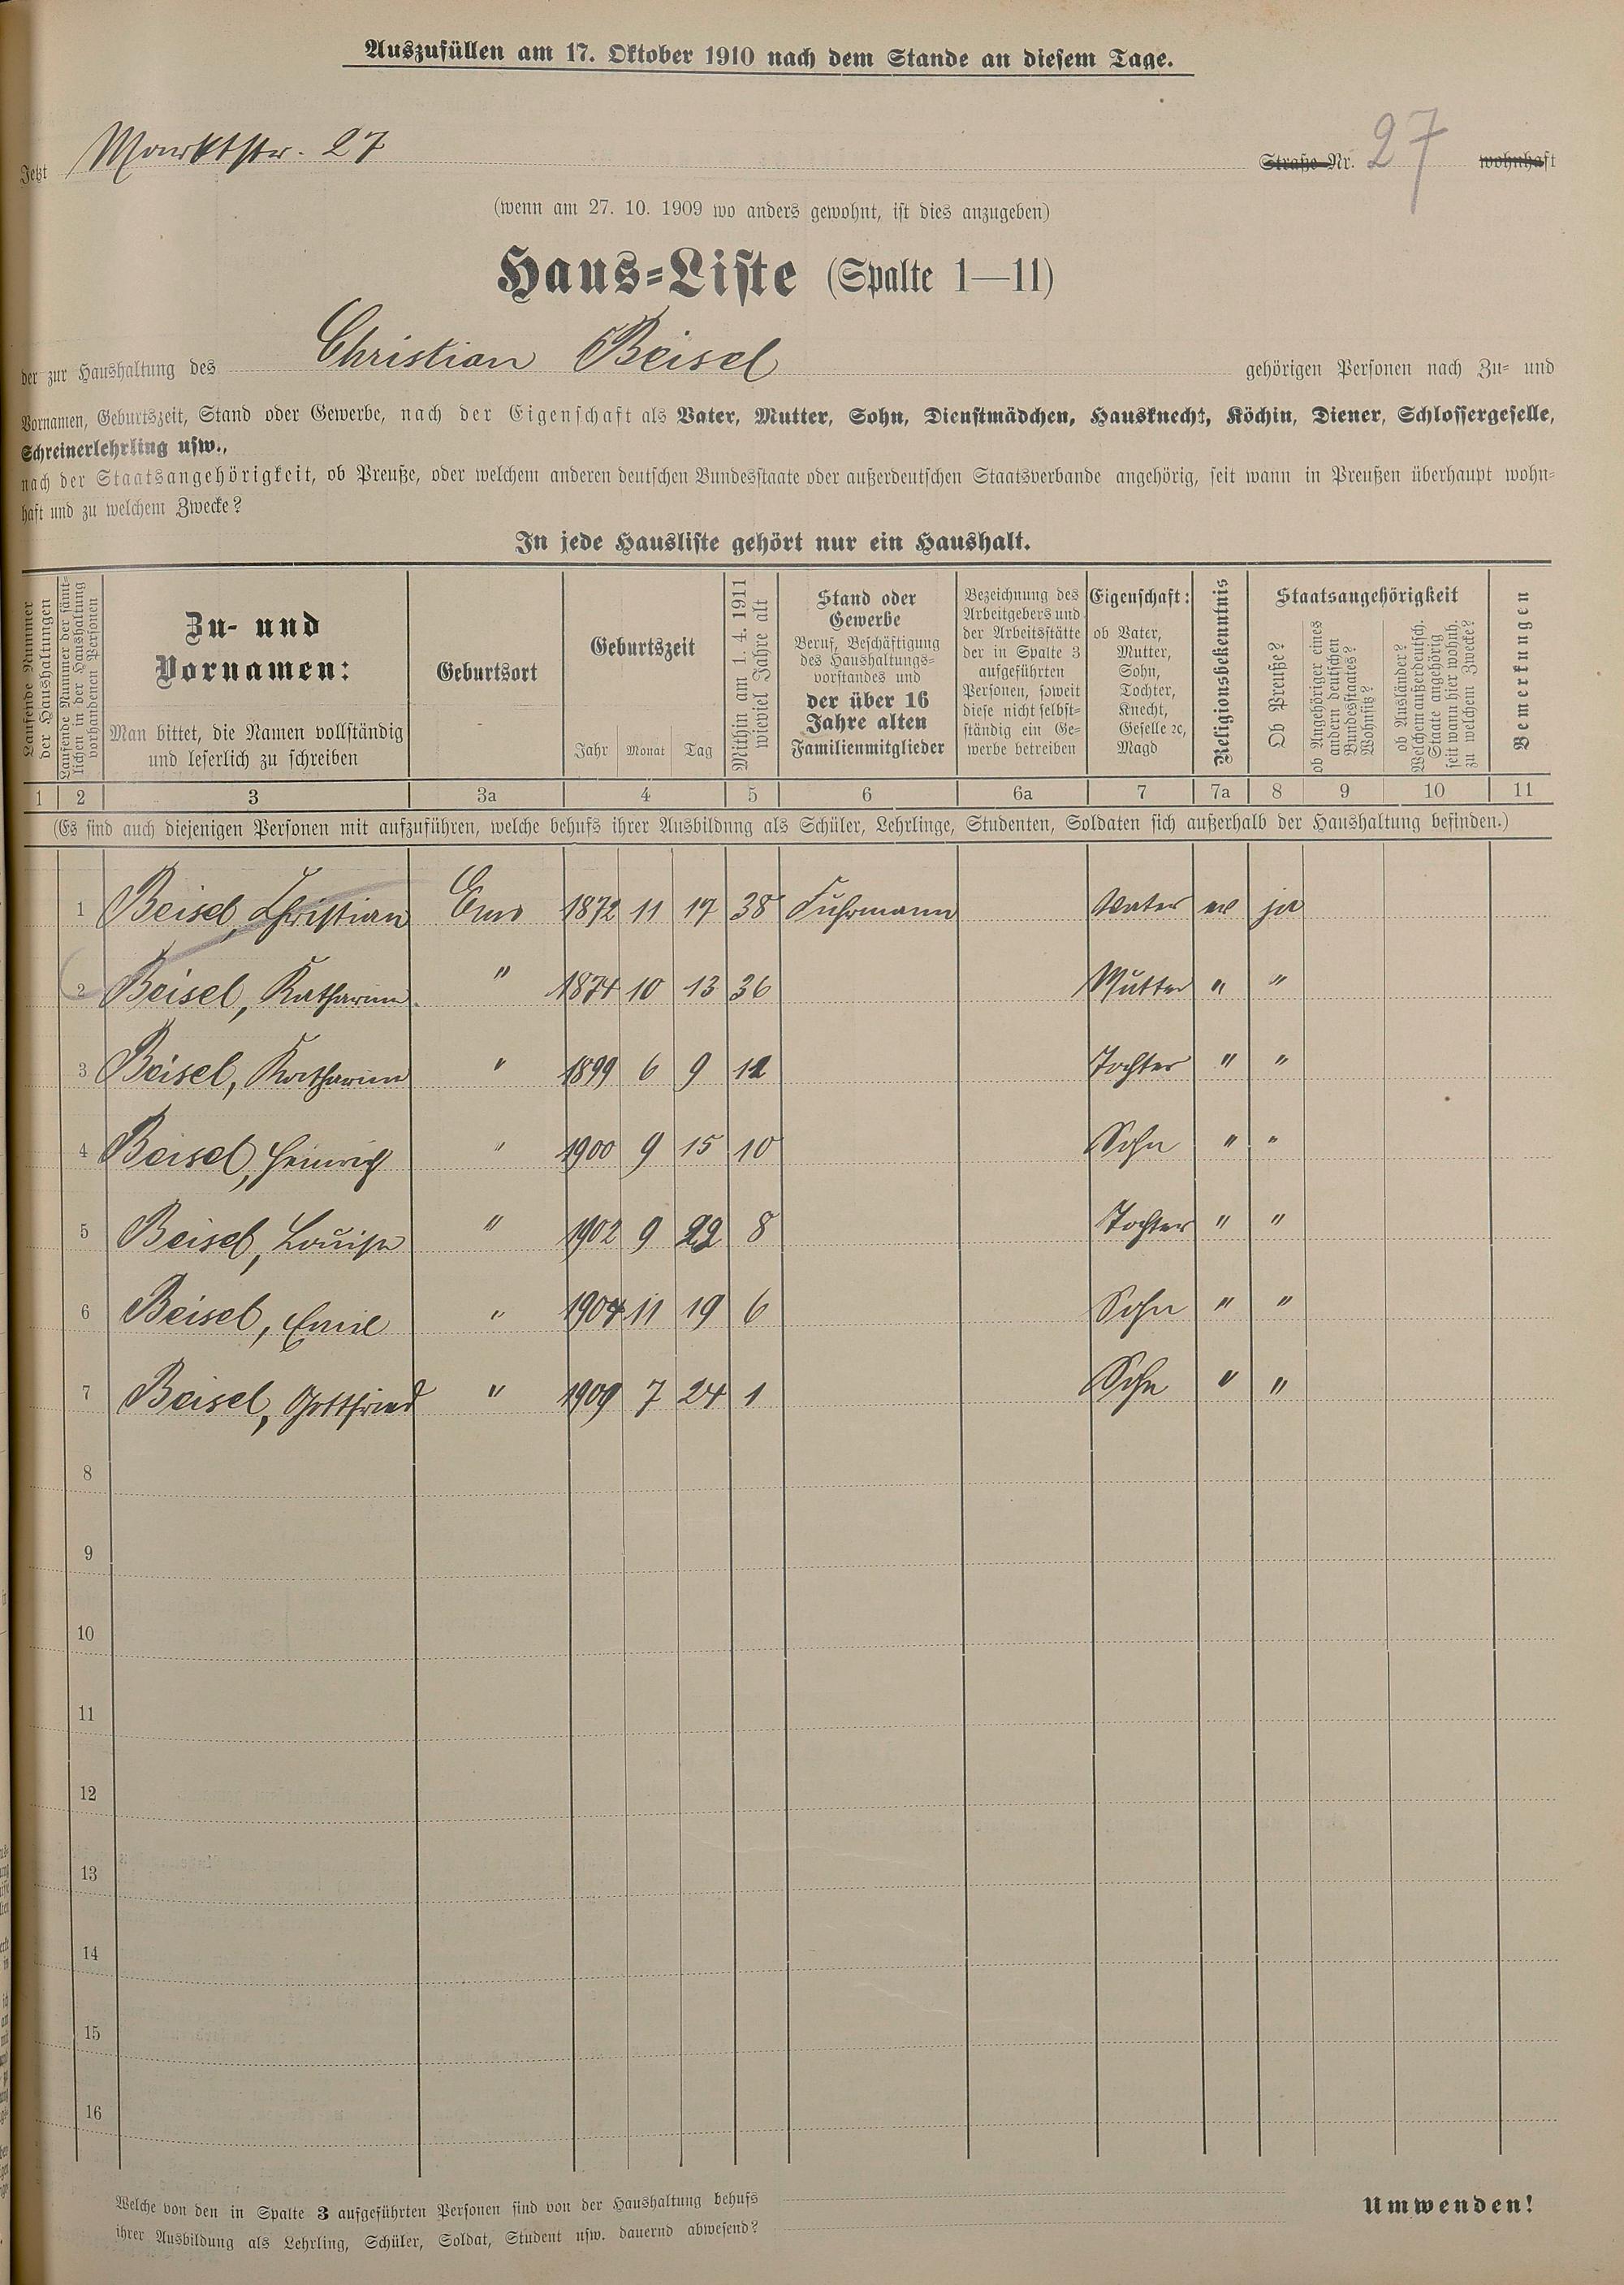 Auszufüllen am 17. Oktober 1910 nach dem Stande an diesem Tage.
Jetzt Marktstr. 27 Straße Nr. 27 wohnhaft
(wenn am 27. 10. 1909 wo anders gewohnt, ist dies anzugeben)
Haus-Liste (Spalte 1—11)
der zur Haushaltung des Christian Beisel gehörigen Personen nach Zu- und
Vornamen, Geburtszeit, Stand oder Gewerbe, nach der Eigenschaft als Vater, Mutter, Sohn, Dienstmädchen, Hausknecht, Köchin, Diener, Schlossergeselle,
Schreinerlehrling usw.,
nach der Staatsangehörigkeit, ob Preuße, oder welchem anderen deutschen Bundesstaate oder außerdeutschen Staatsverbande angehörig, seit wann in Preußen überhaupt wohn-
haft und zu welchem Zwecke?
In jede Hausliste gehört nur ein Haushalt.
Laufende Nummer
der Haushaltungen
Laufende Nummer der sämt-
lichen in der Haushaltung
vorhandenen Personen
Zu- und
Vornamen:
Man bittet, die Namen vollständig
und leserlich zu schreiben
Geburtsort
Geburtszeit
Jahr Monat Tag
Mithin am 1. 4. 1911
wieviel Jahre alt
Stand oder
Gewerbe
Beruf, Beschäftigung
des Haushaltungs-
vorstandes und
der über 16
Jahre alten
Familienmitglieder
Bezeichnung des
Arbeitgebers und
der Arbeitsstätte
der in Spalte 3
aufgeführten
Personen, soweit
diese nicht selbst-
ständig ein Ge-
werbe betreiben
Eigenschaft:
ob Vater,
Mutter,
Sohn,
Tochter,
Knecht,
Geselle ꝛc,
Magd
Religionsbekenntnis
Staatsangehörigkeit
Ob Preuße?
ob Angehöriger eines
andern deutschen
Bundesstaates?
Wohnsitz?
ob Ausländer?
Welchem außerdeutsch.
Staate angehörig
seit wann hier wohnh.
zu welchem Zwecke?
Bemerkungen
1 2 3 3a 4 5 6 6a 7 7a 8 9 10 11
(Es sind auch diejenigen Personen mit aufzuführen, welche behufs ihrer Ausbildung als Schüler, Lehrlinge, Studenten, Soldaten sich außerhalb der Haushaltung befinden.)
1 Beisel, Christian Ems 1872 11 17 38 Fuhrmann Vater ev ja
2 Beisel, Katharina " 1874 10 13 36 Mutter " "
3 Beisel, Katharina " 1899 6 9 12 Tochter " "
4 Beisel, Heinrich " 1900 9 15 10 Sohn " "
5 Beisel, Louise " 1902 9 22 8 Tochter " "
6 Beisel, Emil " 1904 11 19 6 Sohn " "
7 Beisel, Gottfried " 1909 7 24 1 Sohn " "
8
9
10
11
12
13
14
15
16
Welche von den in Spalte 3 aufgeführten Personen sind von der Haushaltung behufs
ihrer Ausbildung als Lehrling, Schüler, Soldat, Student usw. dauernd abwesend?
Umwenden!